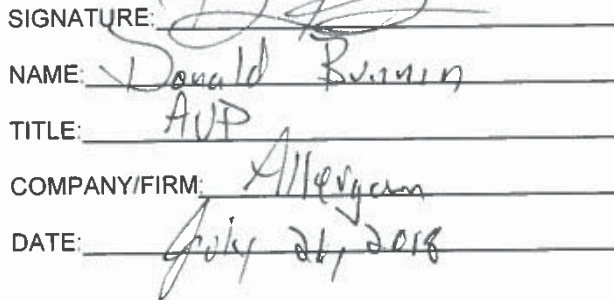 SIGNATURE:
NAME: Donald Bunnin
TITLE: AVP
COMPANY/FIRM: Allergan
DATE: July 26, 2018